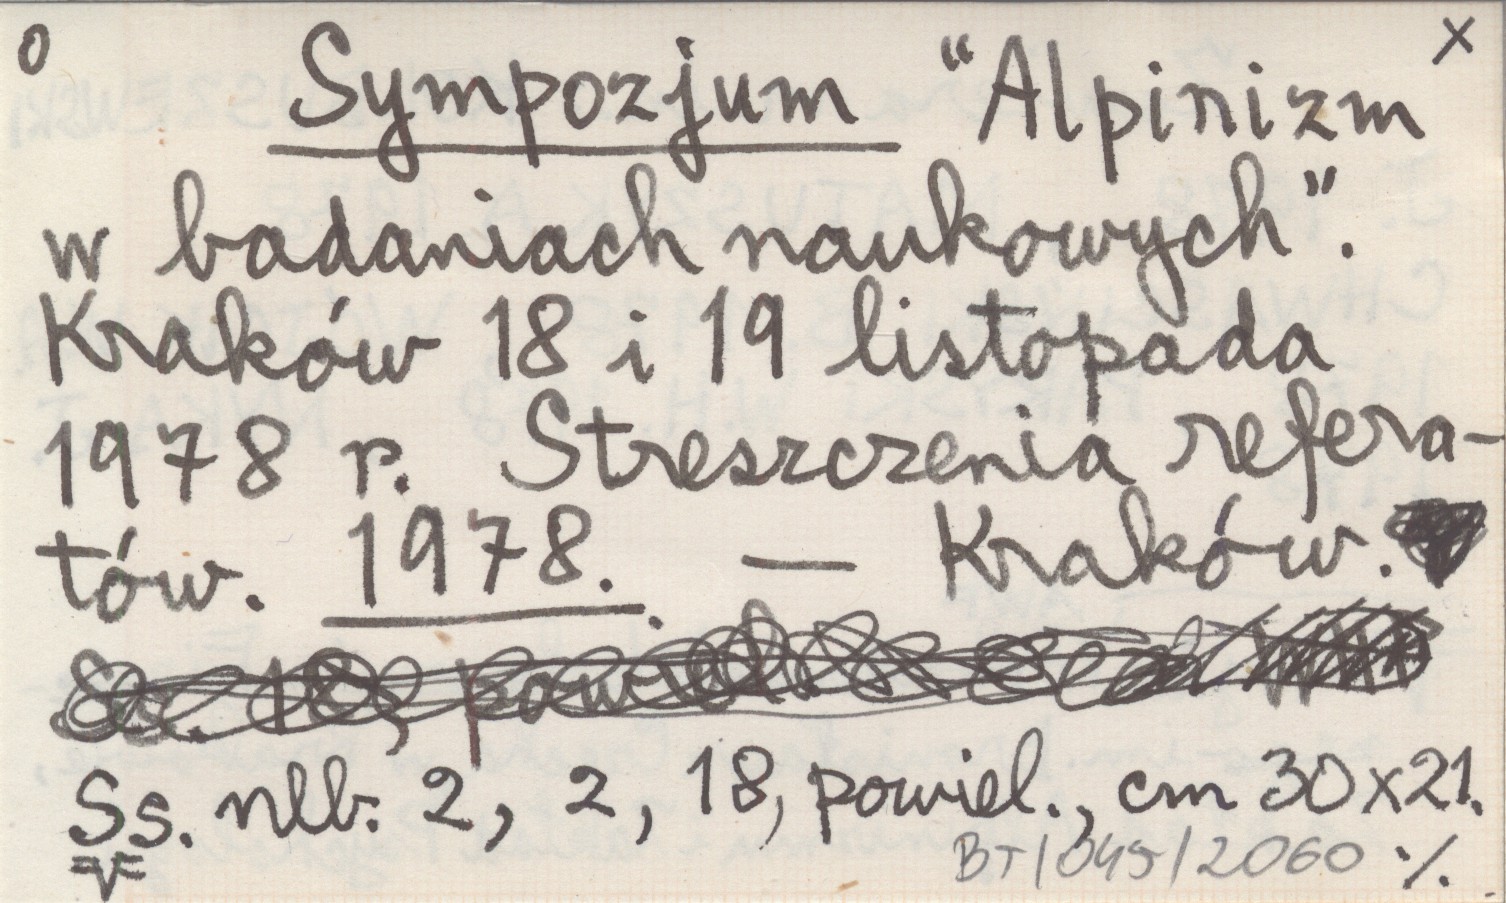 0 Sympozjum “Alpinizm x
w badaniach naukowych”.
Kraków 18 i 19 listopada
1978 r. Streszczenia refera-
tów. 1978. — Kraków.
Ss. nlb. 2, 2, 18, powiel., cm 30x21.
BT/045/2060 ·/.